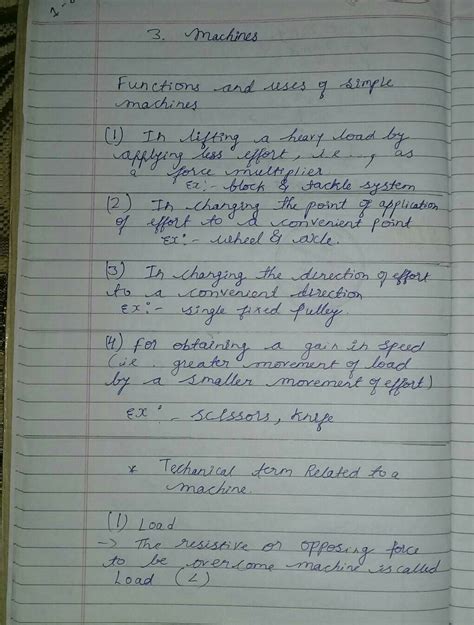 3. Machines
Functions and uses of simple
machines
(1) In lifting a heavy load by
applying less effort, i.e..., as
a force multiplier
Ex:- block & tackle system
(2) In changing the point of application
of effort to a convenient point
Ex:- wheel & axle.
(3) In changing the direction of effort
to a convenient direction
Ex:- single fixed pulley.
(4) for obtaining a gain in speed
(i.e. greater movement of load
by a smaller movement of effort)
Ex:- scissors, knife
* Techanical term Related to a
machine.
(1) Load
-> The resistive or opposing force
to be overcome machine is called
Load (L)